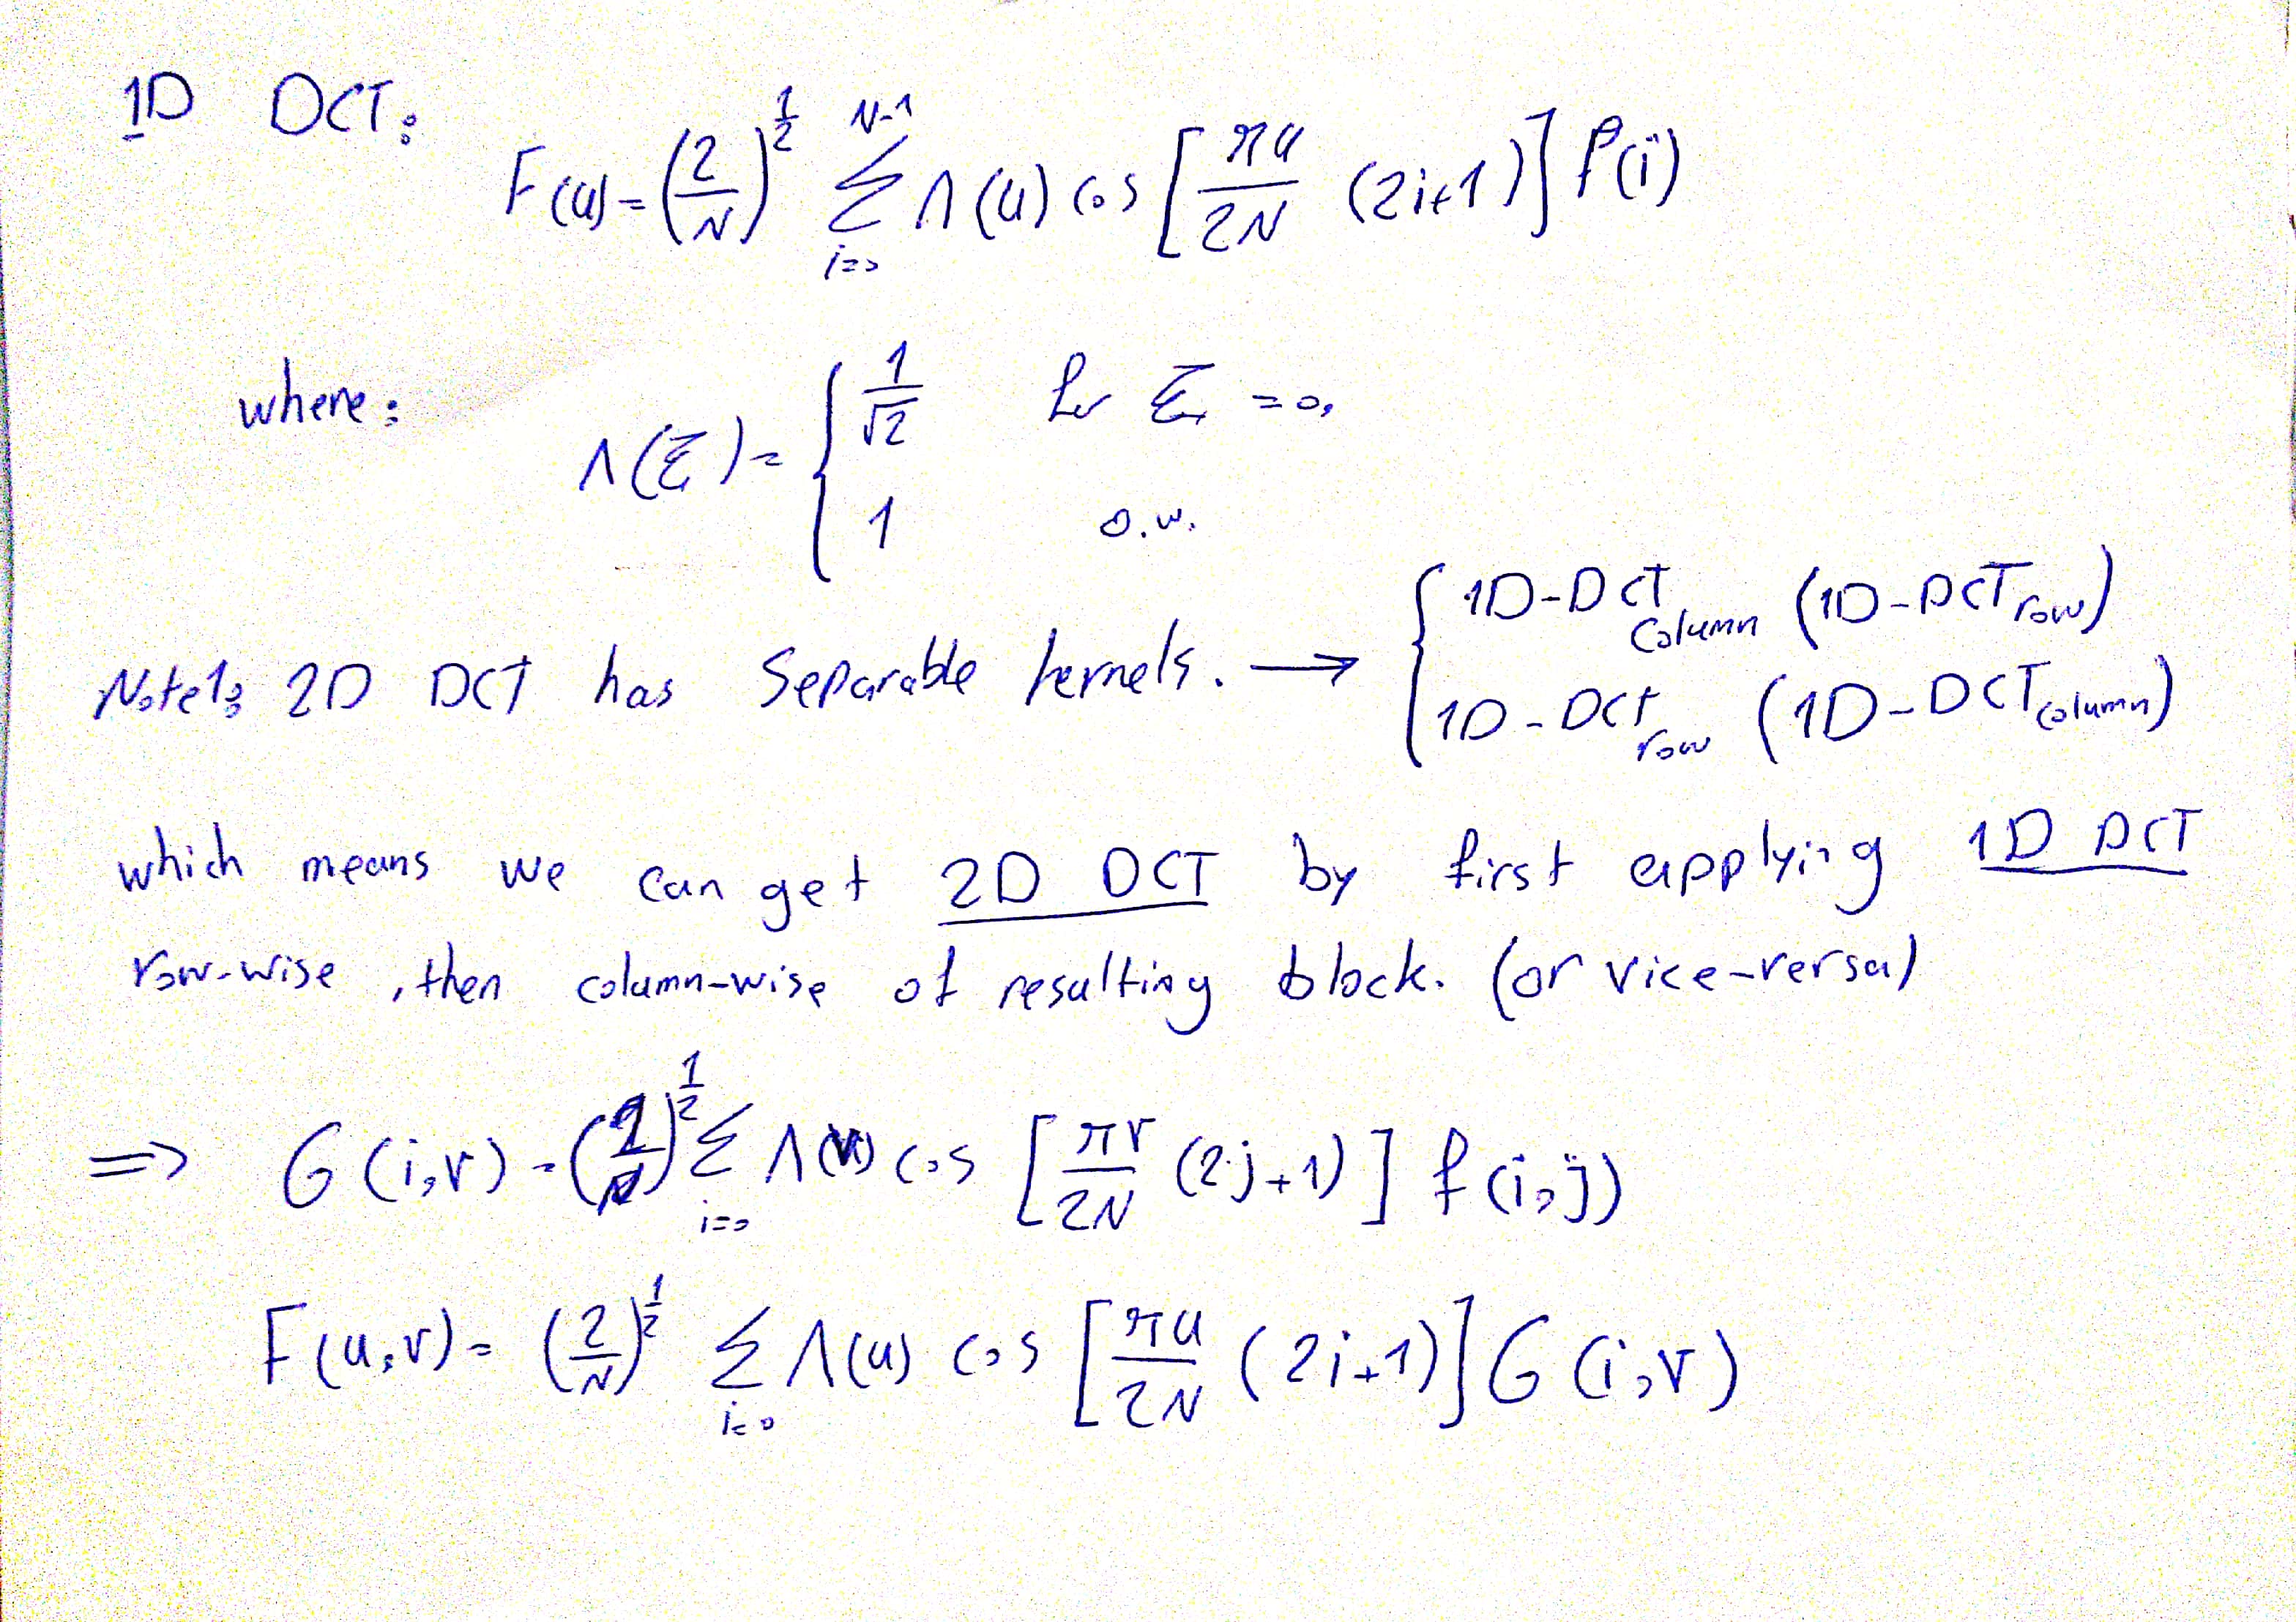 1D DCT:
F(u) = (2/N)^(1/2) Σ_{i=0}^{N-1} Λ(u) cos [πu/2N (2i+1)] f(i)
where:
Λ(ξ) = { 1/√2 for ξ = 0,
1 o.w.
Note1: 2D DCT has separable kernels. → { 1D-DCT_column (1D-DCT_row)
1D-DCT_row (1D-DCT_column)
which means we can get 2D DCT by first applying 1D DCT
row-wise, then column-wise of resulting block. (or vice-versa)
⇒ G(i,v) = (2/N)^(1/2) Σ_{i=0} Λ(v) cos [πv/2N (2j+1)] f(i,j)
F(u,v) = (2/N)^(1/2) Σ_{i=0} Λ(u) cos [πu/2N (2i+1)] G(i,v)